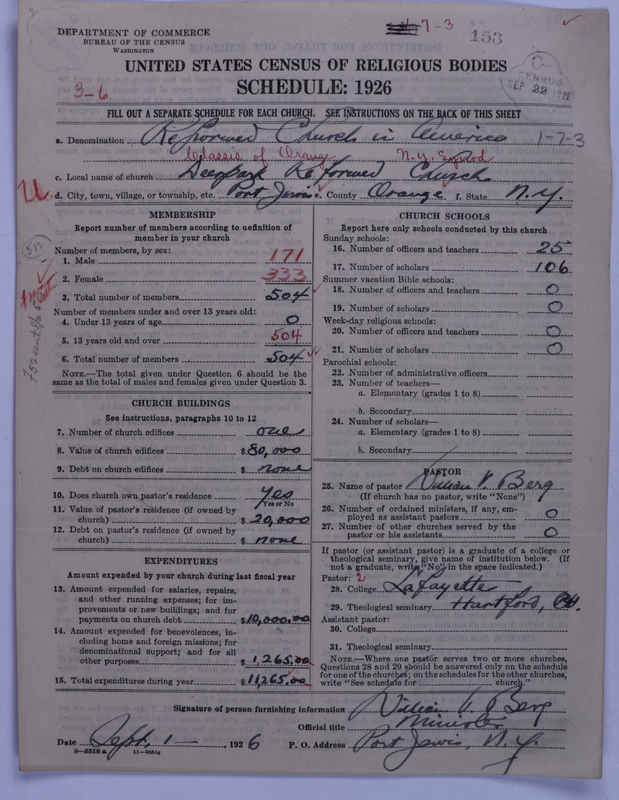 7-3
153
DEPARTMENT OF COMMERCE
BUREAU OF THE CENSUS
WASHINGTON
UNITED STATES CENSUS OF RELIGIOUS BODIES
SCHEDULE: 1926
CENSUS
SEP 22 1926
3-6
FILL OUT A SEPARATE SCHEDULE FOR EACH CHURCH. SEE INSTRUCTIONS ON THE BACK OF THIS SHEET
a. Denomination Reformed Church in America 1-7-3
Classis of Orange N.Y. Synod
c. Local name of church Deerpark Reformed Church
d. City, town, village, or township, etc. Port Jervis e. County Orange f. State N.Y.
MEMBERSHIP
Report number of members according to definition of member in your church
Number of members, by sex:
1. Male 171
2. Female 333
3. Total number of members 504
Number of members under and over 13 years old:
4. Under 13 years of age 0
5. 13 years old and over 504
6. Total number of members 504
NOTE.—The total given under Question 6 should be the same as the total of males and females given under Question 3.
CHURCH BUILDINGS
See instructions, paragraphs 10 to 12
7. Number of church edifices one
8. Value of church edifices $80,000
9. Debt on church edifices $ none
10. Does church own pastor's residence Yes
Yes or No
11. Value of pastor's residence (if owned by church) $20,000
12. Debt on pastor's residence (if owned by church) $ none
EXPENDITURES
Amount expended by your church during last fiscal year
13. Amount expended for salaries, repairs, and other running expenses; for improvements or new buildings; and for payments on church debt $10,000.00
14. Amount expended for benevolences, including home and foreign missions; for denominational support; and for all other purposes $1,265.00
15. Total expenditures during year $11,265.00
CHURCH SCHOOLS
Report here only schools conducted by this church
Sunday schools:
16. Number of officers and teachers 25
17. Number of scholars 106
Summer vacation Bible schools:
18. Number of officers and teachers 0
19. Number of scholars 0
Week-day religious schools:
20. Number of officers and teachers 0
21. Number of scholars 0
Parochial schools:
22. Number of administrative officers
23. Number of teachers—
a. Elementary (grades 1 to 8)
b. Secondary
24. Number of scholars—
a. Elementary (grades 1 to 8)
b. Secondary
PASTOR
25. Name of pastor William V. Berg
(If church has no pastor, write "None")
26. Number of ordained ministers, if any, employed as assistant pastors 0
27. Number of other churches served by the pastor or his assistants 0
If pastor (or assistant pastor) is a graduate of a college or theological seminary, give name of institution below. (If not a graduate, write "No" in the space indicated.)
Pastor: 2
28. College Lafayette
29. Theological seminary Hartford, Ct.
Assistant pastor:
30. College
31. Theological seminary
NOTE.—Where one pastor serves two or more churches, Questions 28 and 29 should be answered only on the schedule for one of the churches; on the schedules for the other churches, write "See schedule for church."
Signature of person furnishing information William V. Berg
Official title Minister
Date Sept. 1, 1926 P. O. Address Port Jervis, N.Y.